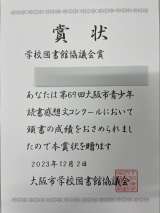 賞状
学校図書館協議会賞
あなたは第69回大阪市青少年
読書感想文コンクールにおいて
頭書の成績をおさめられまし
たので本賞状を贈ります
2023年12月2日
大阪市学校図書館協議会